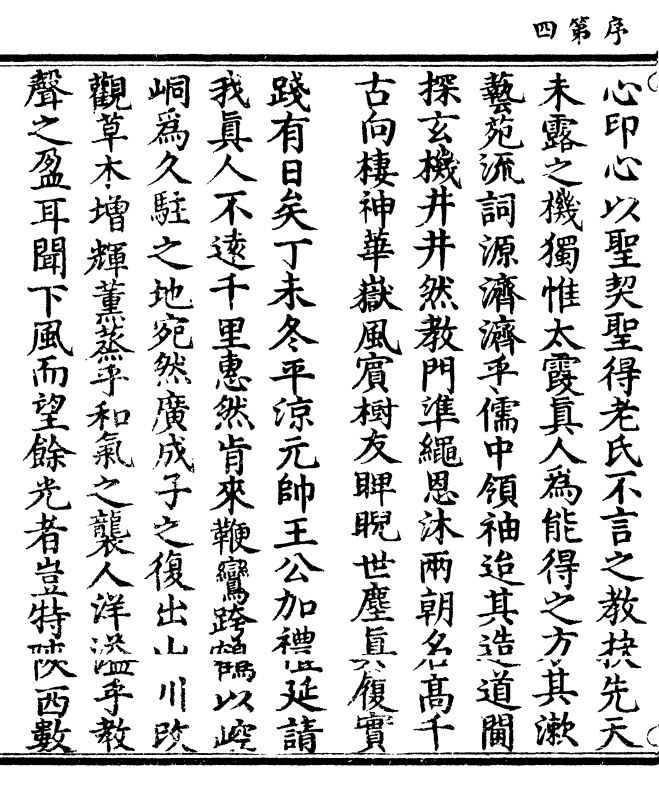 序第四
心印心以聖契聖得老氏不言之教抉先天
未露之機獨惟太霞眞人爲能得之方其漱
藝苑流詞源濟濟乎儒中領袖迨其造道閫
探玄機井井然教門準繩恩沐兩朝名高千
古向棲神華嶽風賓樹友睥睨世塵眞履實
踐有日矣丁未冬平涼元帥王公加禮延請
我眞人不遠千里惠然肯來鞭鸞跨鶴以崆
峒爲久駐之地宛然廣成子之復出山川改
觀草木增輝薰蒸乎和氣之襲人洋溢乎教
聲之盈耳聞下風而望餘光者豈特陝西數